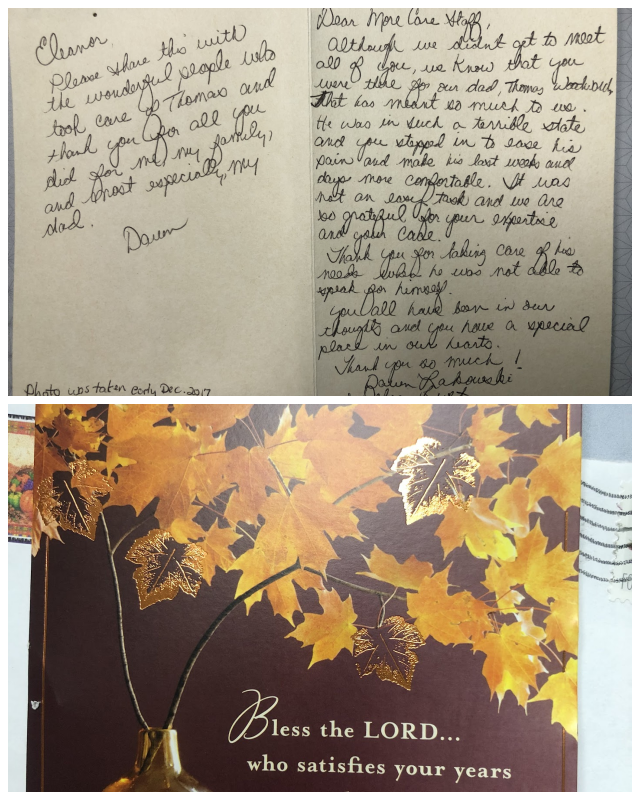 Eleanor,
Please share this with
the wonderful people who
took care of Thomas and
thank you for all you
did for me, my family,
and most especially, my
dad.
Dawn
Photo was taken early Dec. 2017
Dear More Care Staff,
Although we didn't get to meet
all of you, we know that you
were there for our dad, Thomas
That has meant so much to us.
He was in such a terrible state
and you stepped in to ease his
pain and make his last weeks and
days more comfortable. It was
not an easy task and we are
so grateful for your expertise
and your care.
Thank you for taking care of his
needs when he was not able to
speak for himself.
You all have been in our
thoughts and you have a special
place in our hearts.
Thank you so much!
Dawn
Bless the LORD...
who satisfies your years